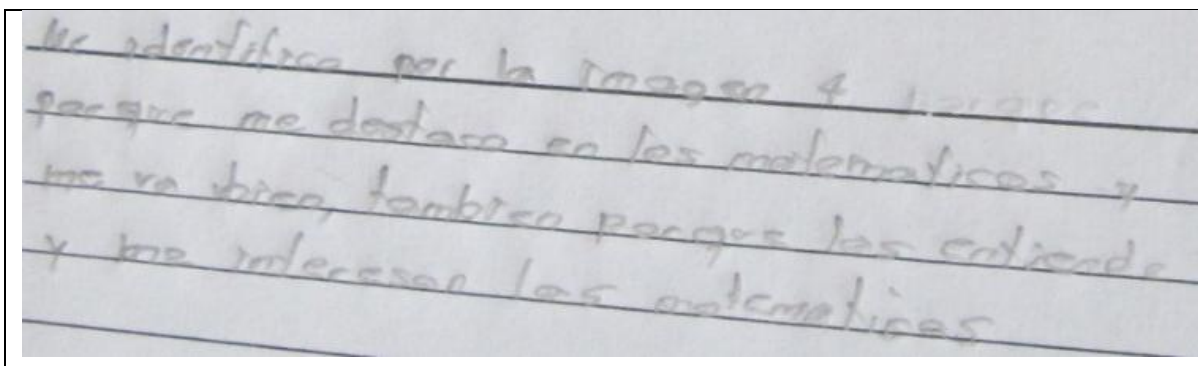 Me identifico por la imagen 4
porque me destaco en las matematicas y
me va bien, tambien porque las entiendo
y me interesan las matematicas